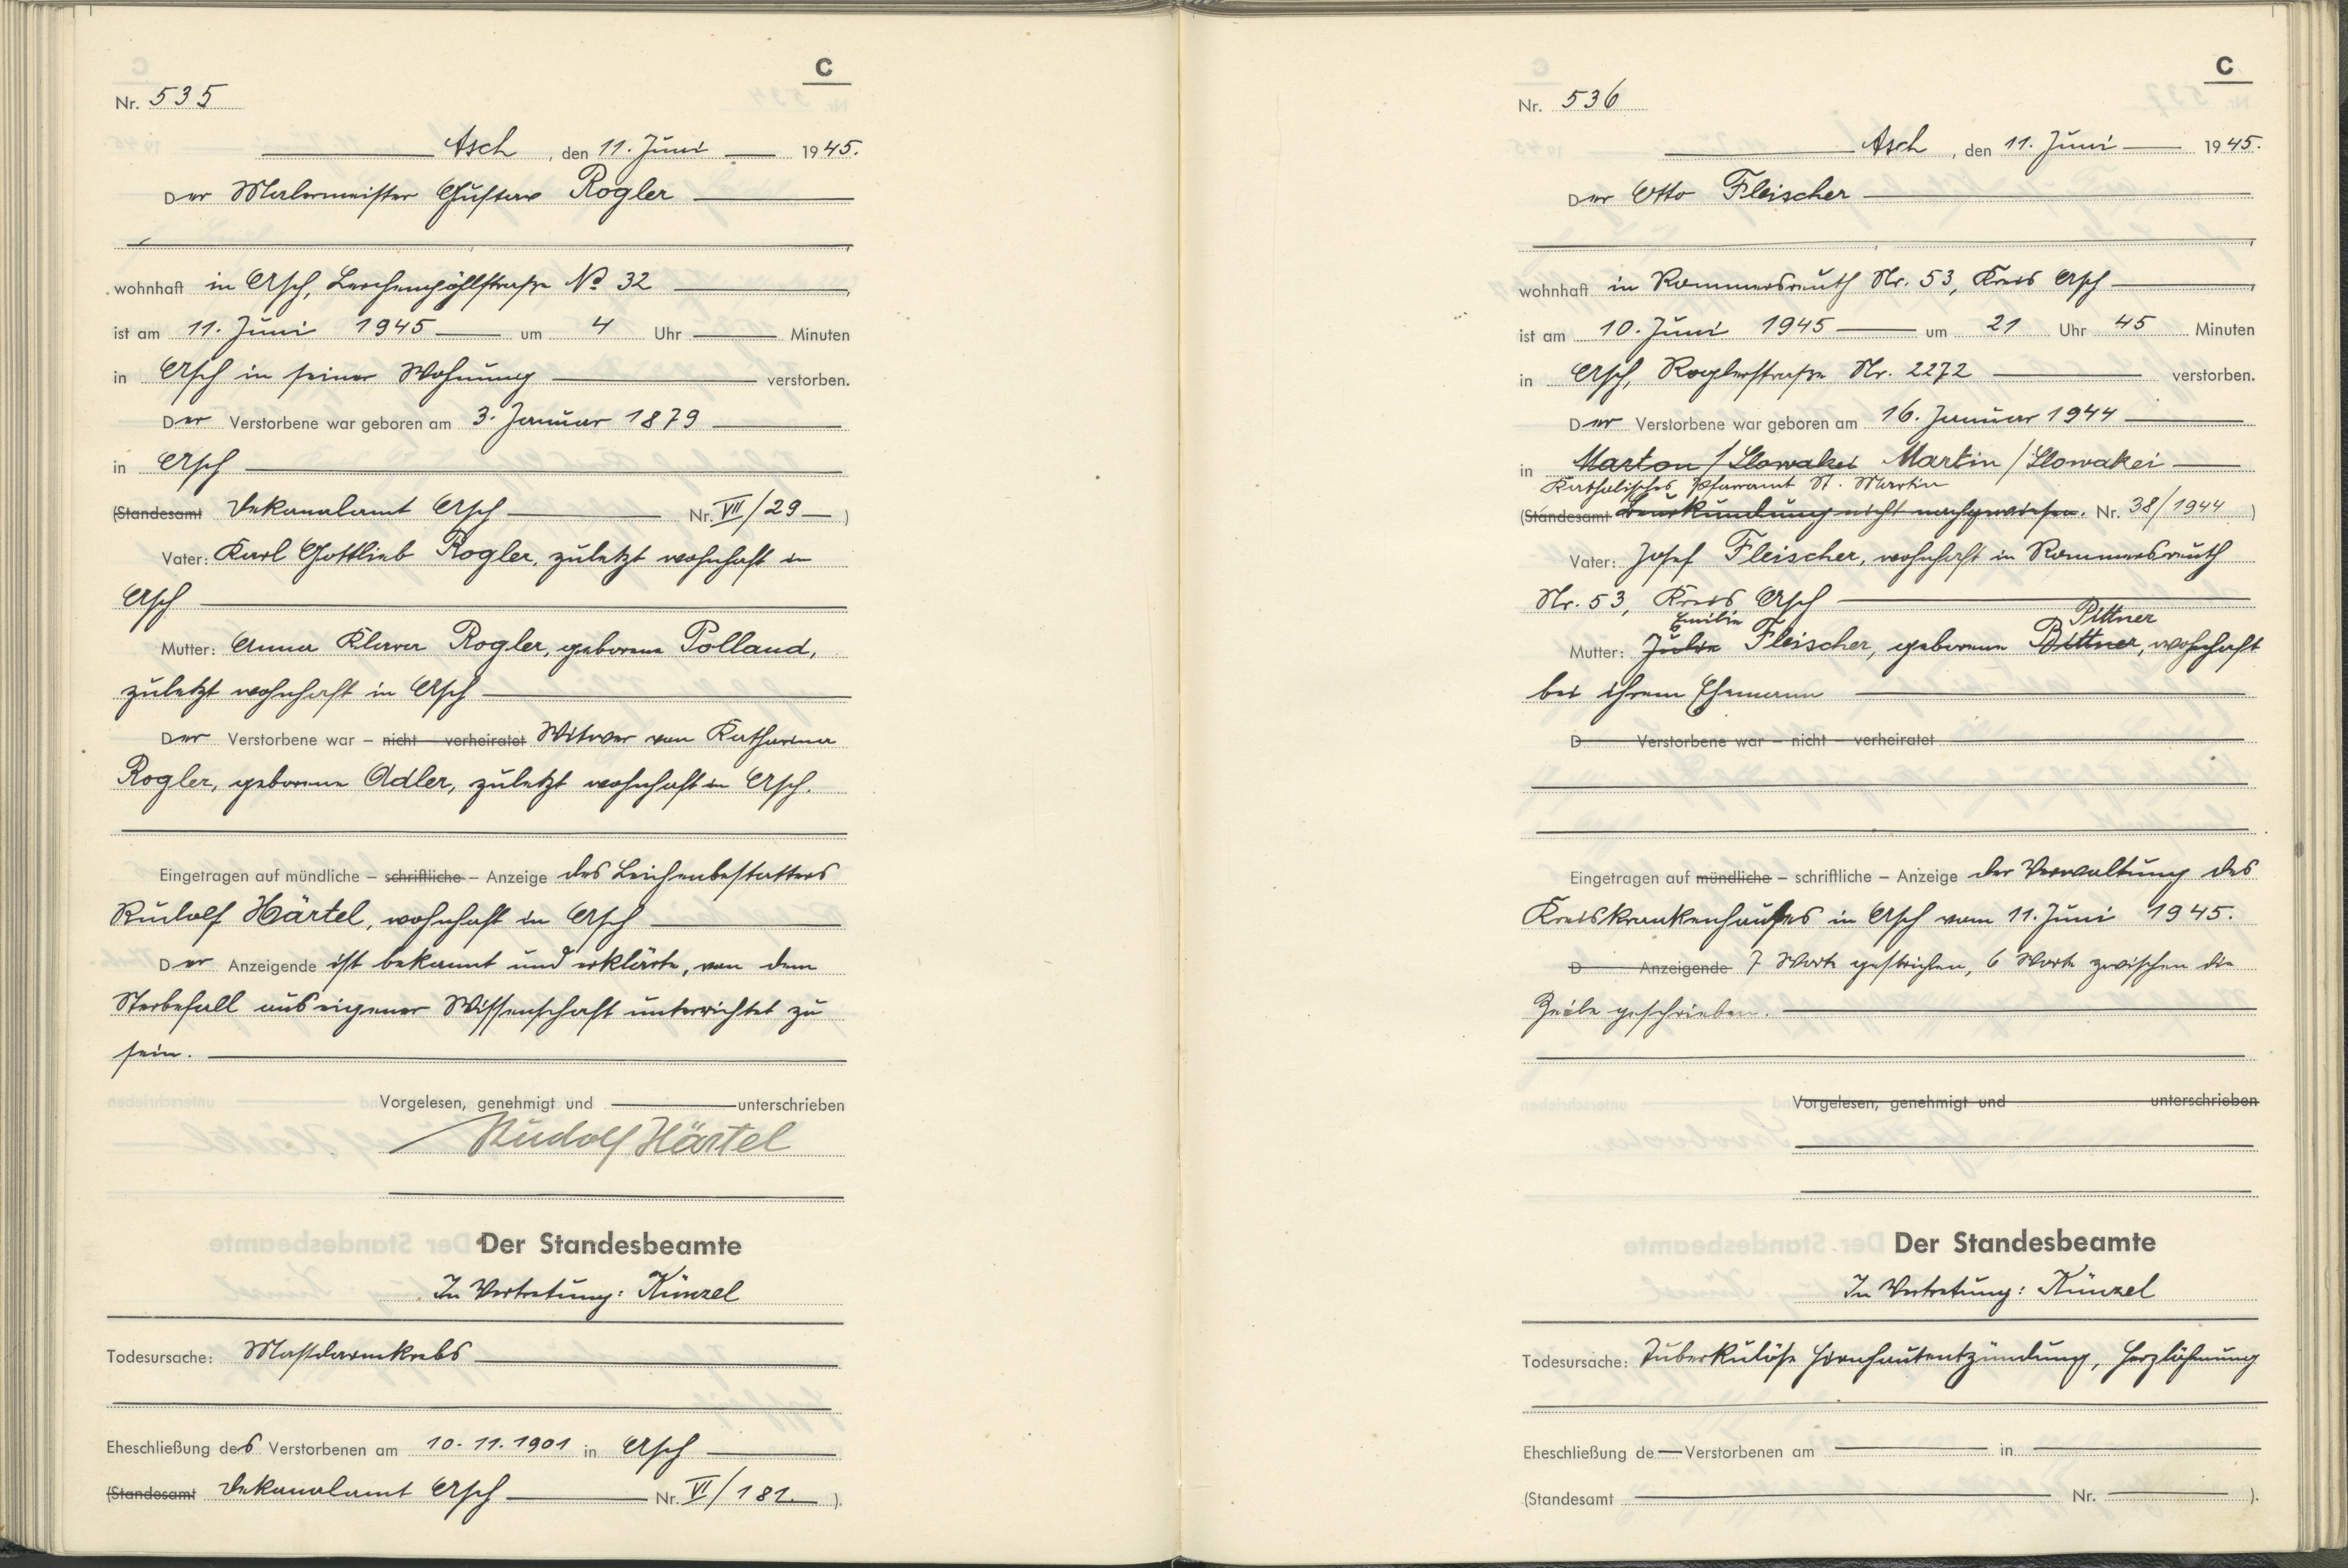 C
Nr. 535
Asch, den 11. Juni 1945.
Der Malermeister Gustav Rogler
wohnhaft in Asch, Lerchenpöhlstraße No 32
ist am 11. Juni 1945 um 4 Uhr Minuten
in Asch in seiner Wohnung verstorben.
Der Verstorbene war geboren am 3. Januar 1879
in Asch
(Standesamt Dekanalamt Asch Nr. VII/29)
Vater: Karl Gottlieb Rogler, zuletzt wohnhaft in
Asch
Mutter: Anna Klara Rogler, geborene Polland,
zuletzt wohnhaft in Asch
Der Verstorbene war – nicht – verheiratet Witwer von Katharina
Rogler, geborene Adler, zuletzt wohnhaft in Asch.
Eingetragen auf mündliche – schriftliche – Anzeige des Leichenbestatters
Rudolf Härtel, wohnhaft in Asch
Der Anzeigende ist bekannt und erklärte, von dem
Sterbefall aus eigener Wissenschaft unterrichtet zu
sein.
Vorgelesen, genehmigt und unterschrieben
Rudolf Härtel
Der Standesbeamte
In Vertretung: Künzel
Todesursache: Mastdarmkrebs
Eheschließung des Verstorbenen am 10. 11. 1901 in Asch
(Standesamt Dekanalamt Asch Nr. VI/181).
C
Nr. 536
Asch, den 11. Juni 1945.
Der Otto Fleischer
wohnhaft in Rommersreuth Nr. 53, Kreis Asch
ist am 10. Juni 1945 um 21 Uhr 45 Minuten
in Asch, Roglerstraße Nr. 2272 verstorben.
Der Verstorbene war geboren am 16. Januar 1944
in Marton / Slowakei Martin / Slowakei
Katholisches Pfarramt St. Martin
(Standesamt Beurkundung nicht nachgewiesen. Nr. 38/1944)
Vater: Josef Fleischer, wohnhaft in Rommersreuth
Nr. 53, Kreis Asch
Emilie Pittner
Mutter: Julie Fleischer, geborene Bittner, wohnhaft
bei ihrem Ehemann
D Verstorbene war – nicht – verheiratet
Eingetragen auf mündliche – schriftliche – Anzeige der Verwaltung des
Kreiskrankenhauses in Asch vom 11. Juni 1945.
D Anzeigende 7 Worte gestrichen, 6 Worte zwischen die
Zeile geschrieben.
Vorgelesen, genehmigt und unterschrieben
Der Standesbeamte
In Vertretung: Künzel
Todesursache: Tuberkulöse Hirnhautentzündung, Herzlähmung
Eheschließung de Verstorbenen am in
(Standesamt Nr. ).